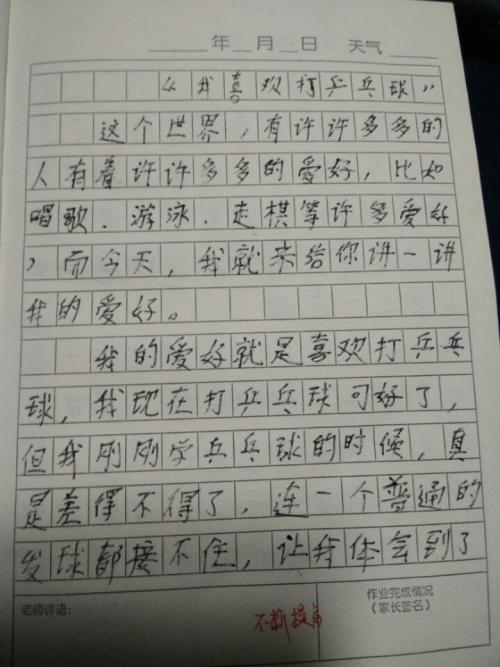 年 月 日 天气
《我喜欢打乒乓球》
这个世界，有许许多多的
人有着许许多多的爱好，比如
唱歌、游泳、走棋等许多爱好
，而今天，我就来给你讲一讲
我的爱好。
我的爱好就是喜欢打乒乓
球，我现在打乒乓球可好了，
但我刚刚学乒乓球的时候，真
是差得不得了，连一个普通的
发球都接不住，让我体会到了
老师评语：
不断提高
作业完成情况
（家长签名）